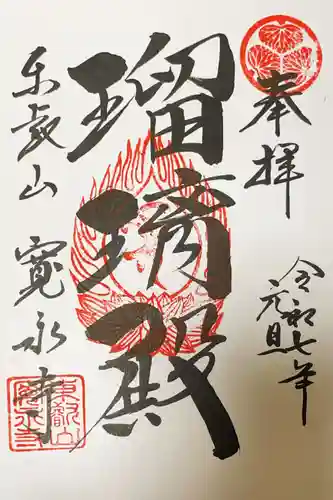 奉拝
令和七年
元旦
瑠璃殿
东叡山
寛永寺
東叡山
寛永寺